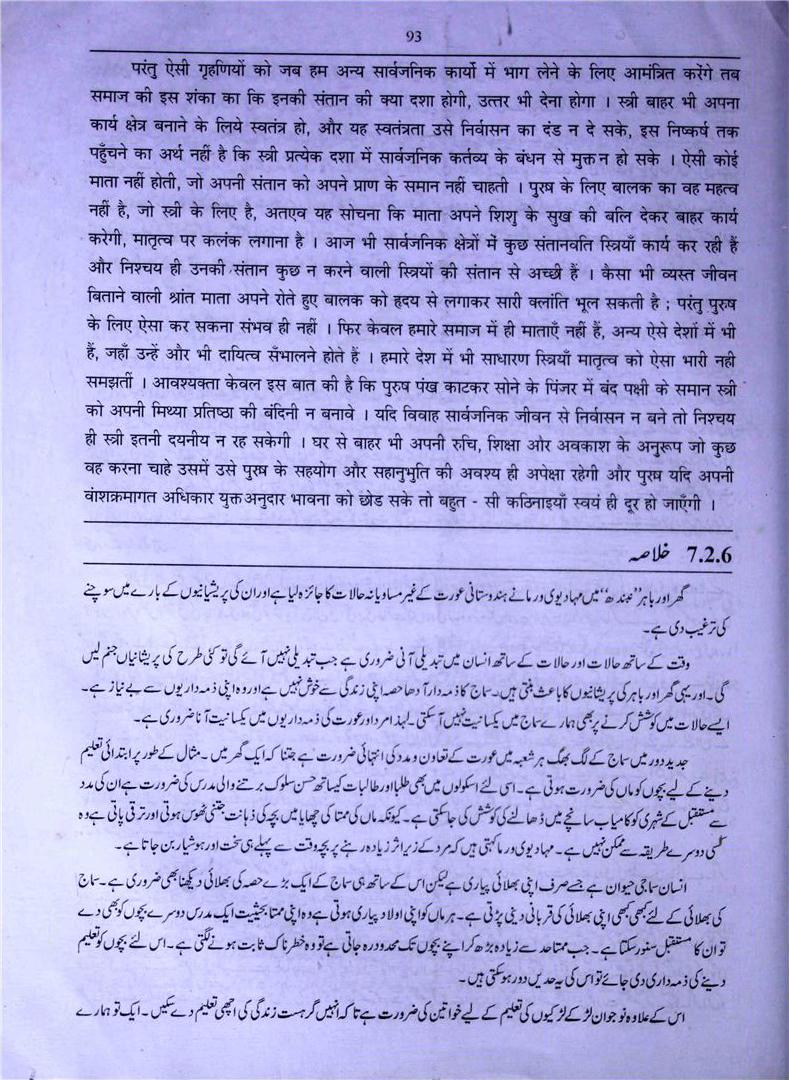 93
परंतु ऐसी गृहणियों को जब हम अन्य सार्वजनिक कार्यो में भाग लेने के लिए आमंत्रित करेंगे तब
समाज की इस शंका का कि इनकी संतान की क्या दशा होगी, उत्तर भी देना होगा । स्त्री बाहर भी अपना
कार्य क्षेत्र बनाने के लिये स्वतंत्र हो, और यह स्वतंत्रता उसे निर्वासन का दंड न दे सके, इस निष्कर्ष तक
पहुँचने का अर्थ नहीं है कि स्त्री प्रत्येक दशा में सार्वजनिक कर्तव्य के बंधन से मुक्त न हो सके । ऐसी कोई
माता नहीं होती, जो अपनी संतान को अपने प्राण के समान नहीं चाहती । पुरुष के लिए बालक का वह महत्व
नहीं है, जो स्त्री के लिए है, अतएव यह सोचना कि माता अपने शिशु के सुख की बलि देकर बाहर कार्य
करेगी, मातृत्व पर कलंक लगाना है । आज भी सार्वजनिक क्षेत्रों में कुछ संतानवति स्त्रियाँ कार्य कर रही हैं
और निश्चय ही उनकी संतान कुछ न करने वाली स्त्रियों की संतान से अच्छी हैं । कैसा भी व्यस्त जीवन
बिताने वाली श्रांत माता अपने रोते हुए बालक को हृदय से लगाकर सारी क्लांति भूल सकती है ; परंतु पुरुष
के लिए ऐसा कर सकना संभव ही नहीं । फिर केवल हमारे समाज में ही माताएँ नहीं हैं, अन्य ऐसे देशों में भी
हैं, जहाँ उन्हें और भी दायित्व सँभालने होते हैं । हमारे देश में भी साधारण स्त्रियाँ मातृत्व को ऐसा भारी नही
समझतीं । आवश्यक्ता केवल इस बात की है कि पुरुष पंख काटकर सोने के पिंजर में बंद पक्षी के समान स्त्री
को अपनी मिथ्या प्रतिष्ठा की बंदिनी न बनावे । यदि विवाह सार्वजनिक जीवन से निर्वासन न बने तो निश्चय
ही स्त्री इतनी दयनीय न रह सकेगी । घर से बाहर भी अपनी रुचि, शिक्षा ओर अवकाश के अनुरूप जो कुछ
वह करना चाहे उसमें उसे पुरुष के सहयोग और सहानुभुति की अवश्य ही अपेक्षा रहेगी और पुरुष यदि अपनी
वांशक्रमागत अधिकार युक्त अनुदार भावना को छोड सके तो बहुत - सी कठिनाइयाँ स्वयं ही दूर हो जाएँगी ।
7.2.6 خلاصہ
گھر اور باہر’’ نبندھ‘‘ میں مہادیوی ورما نے ہندوستانی عورت کے غیر مساویانہ حالات کا جائزہ لیا ہے اور ان کی پریشانیوں کے بارے میں سوچنے
کی ترغیب دی ہے۔
وقت کے ساتھ حالات اور حالات کے ساتھ انسان میں تبدیلی آنی ضروری ہے جب تبدیلی نہیں آئے گی تو کئی طرح کی پریشانیاں جنم لیں
گی۔ اور یہی گھر اور باہر کی پریشانیوں کا باعث بنتی ہیں۔ سماج کا ذمہ دار آدھا حصہ اپنی زندگی سے خوش نہیں ہے اور وہ اپنی ذمہ داریوں سے بے نیاز ہے۔
ایسے حالات میں کوشش کرنے پر بھی ہمارے سماج میں یکسانیت نہیں آسکتی۔ لہذا مرد اور عورت کی ذمہ داریوں میں یکسانیت آنا ضروری ہے۔
جدید دور میں سماج کے لگ بھگ ہر شعبہ میں عورت کے تعاون و مدد کی انتہائی ضرورت ہے جتنا کہ ایک گھر میں۔ مثال کے طور پر ابتدائی تعلیم
دینے کے لیے بچوں کو ماں کی ضرورت ہوتی ہے۔ اسی لئے اسکولوں میں بھی طلبا اور طالبات کیساتھ حسن سلوک برتنے والی مدرس کی ضرورت ہے ان کی مدد
سے مستقبل کے شہری کو کامیاب سانچے میں ڈھالنے کی کوشش کی جاسکتی ہے۔ کیونکہ ماں کی ممتا کی چھایا میں بچہ کی ذہانت جتنی ٹھوس ہوتی اور ترقی پاتی ہے وہ
کسی دوسرے طریقہ سے ممکن نہیں ہے۔ مہادیوی ورما کہتی ہیں کہ مرد کے زیر اثر زیادہ رہنے پر بچہ وقت سے پہلے ہی سخت اور ہوشیار بن جاتا ہے۔
انسان سماجی حیوان ہے جسے صرف اپنی بھلائی پیاری ہے لیکن اس کے ساتھ ہی سماج کے ایک بڑے حصہ کی بھلائی دیکھنا بھی ضروری ہے۔ سماج
کی بھلائی کے لئے کبھی کبھی اپنی بھلائی کی قربانی دینی پڑتی ہے۔ ہر ماں کو اپنی اولاد پیاری ہوتی ہے وہ اپنی ممتا بحیثیت ایک مدرس دوسرے بچوں کو بھی دے
تو ان کا مستقبل سنور سکتا ہے۔ جب ممتا حد سے زیادہ بڑھ کر اپنے بچوں تک محدود رہ جاتی ہے تو وہ خطرناک ثابت ہونے لگتی ہے۔ اس لئے بچوں کو تعلیم
دینے کی ذمہ داری دی جائے تو اس کی یہ حدیں دور ہوسکتی ہیں۔
اس کے علاوہ نوجوان لڑکے لڑکیوں کی تعلیم کے لیے خواتین کی ضرورت ہے تاکہ انہیں گرہست زندگی کی اچھی تعلیم دے سکیں۔ ایک تو ہمارے